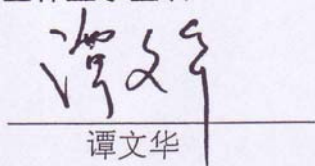 谭文华
谭文华